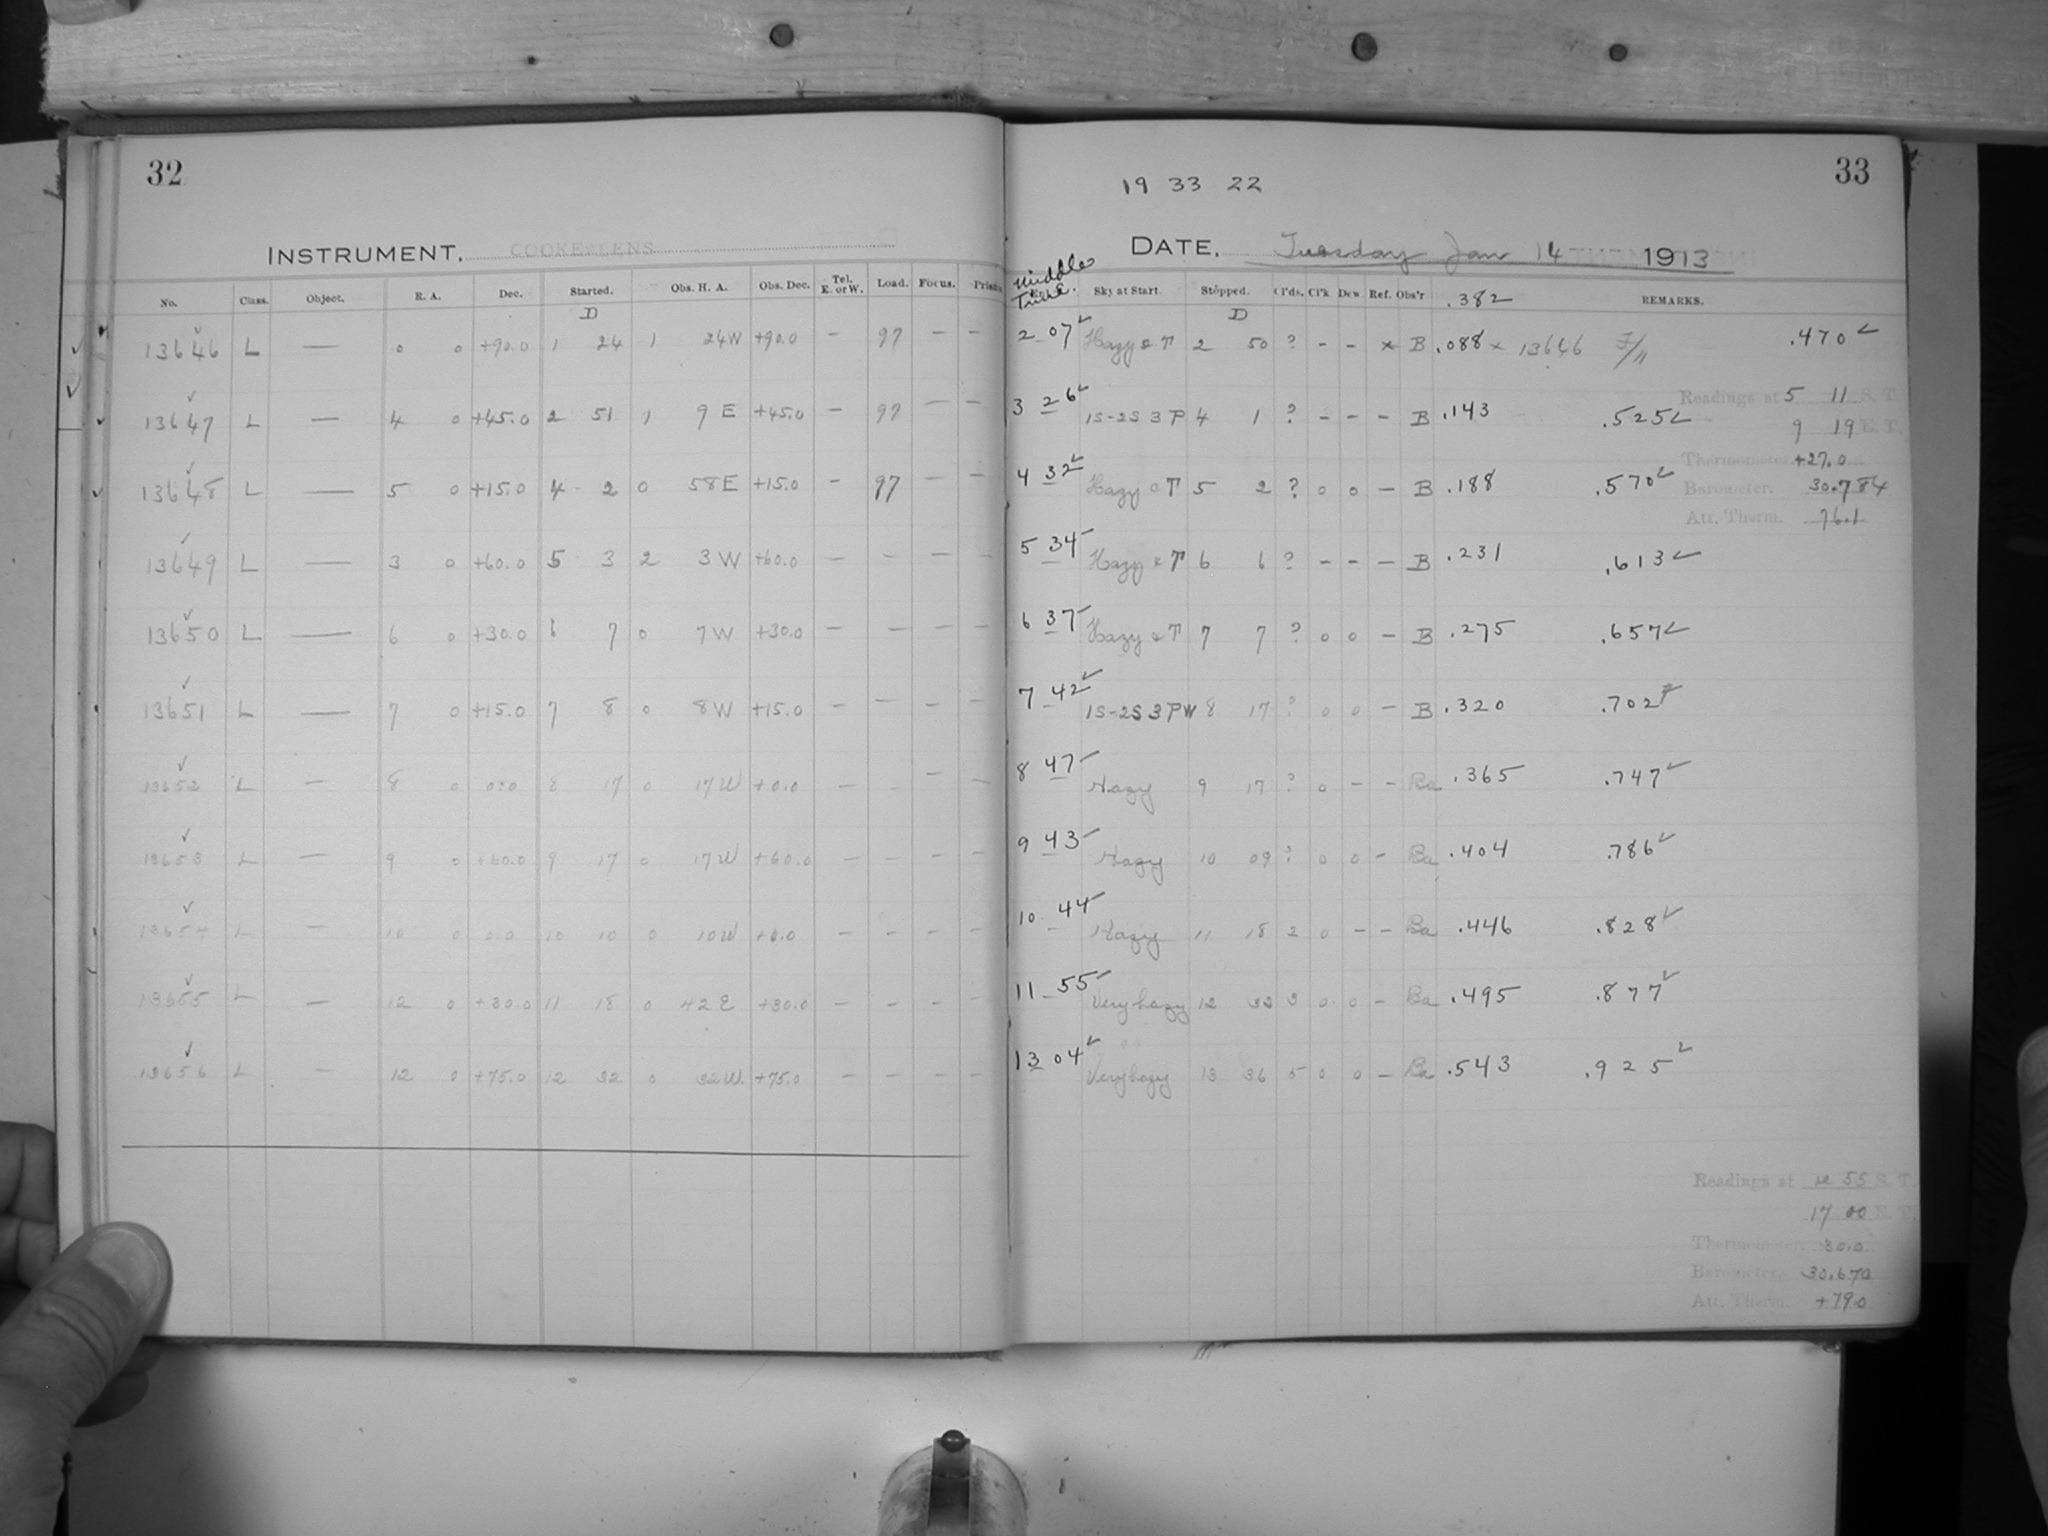 32
INSTRUMENT, COOKE LENS
No. Class. Object. R. A. Dec. Started. Obs. H. A. Obs. Dec. Tel. E. or W. Load. Focus. Prism.
D
13646 L — 0 0 +90.0 1 24 1 24W +90.0 — 97 — —
13647 L — 4 0 +45.0 2 51 1 9 E +45.0 — 97 — —
13648 L — 5 0 +15.0 4 2 0 58E +15.0 — 97 — —
13649 L — 3 0 +60.0 5 3 2 3W +60.0 — — — —
13650 L — 6 0 +30.0 6 7 0 7W +30.0 — — — —
13651 L — 7 0 +15.0 7 8 0 8W +15.0 — — — —
13652 L — 8 0 0.0 8 17 0 17W +0.0 — — — —
13653 L — 9 0 +60.0 9 17 0 17W +60.0 — — — —
13654 L — 10 0 0.0 10 10 0 10W +0.0 — — — —
13655 L — 12 0 +30.0 11 18 0 42E +30.0 — — — —
13656 L — 12 0 +75.0 12 32 0 32W. +75.0 — — — —
33
19 33 22
DATE, Tuesday Jan 14 1913
Middle Time. Sky at Start. Stopped. Cl'ds. Cl'k Dew Ref. Obs'r .382 REMARKS.
D
2 07 Hazy & T 2 50 ? - - x B .088 x 13646 .470
3 26 1S-2S 3 P 4 1 ? - - - B .143 .525
4 32 Hazy T 5 2 ? 0 0 - B .188 .570
5 34 Hazy & T 6 6 ? - - - B .231 .613
6 37 Hazy & T 7 7 ? 0 0 - B .275 .657
7 42 1S-2S 3 PW 8 17 ? 0 0 - B .320 .702
8 47 Hazy 9 17 ? 0 - - Ba .365 .747
9 43 Hazy 10 09 ? 0 0 - Ba .404 .786
10 44 Hazy 11 18 2 0 - - Ba .446 .828
11 55 Very hazy 12 32 3 0 0 - Ba .495 .877
13 04 Very hazy 13 36 5 0 0 - Ba .543 .925
Readings at 5 11 S. T.
9 19 E. T.
Thermometer. +27.0
Barometer. 30.784
Att. Therm. 76.1
Readings at 55 S. T.
17 00 E. T.
Thermometer. 30.0
Barometer. 30.670
Att. Therm. +79.0